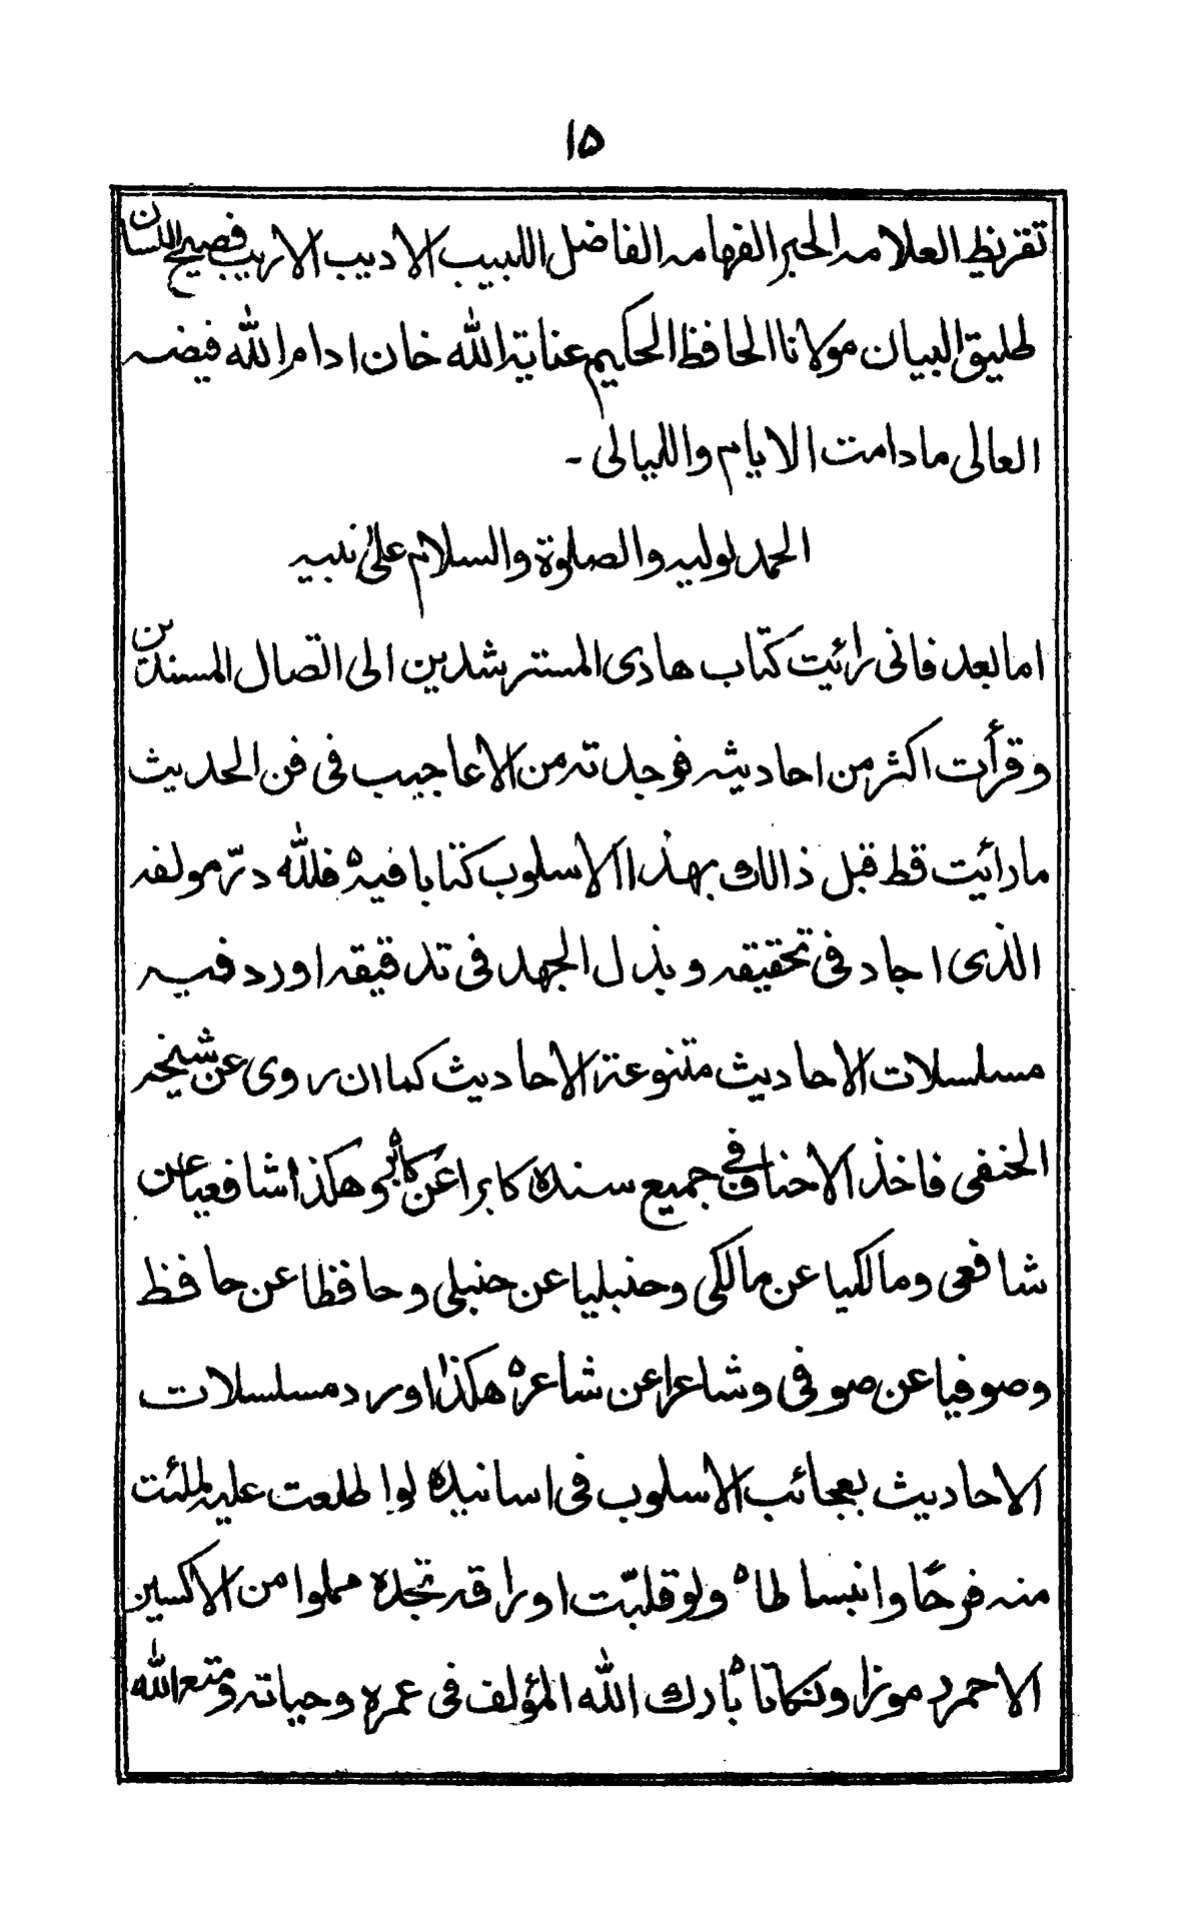 ۱۵
تقريظ العلامة الحبر الفهامة الفاضل اللبيب الاديب الاريب فصيح اللسان
طليق البيان مولانا الحافظ الحكيم عناية الله خان ادام الله فيضه
العالى مادامت الايام والليالى ۔
الحمد لوليه والصلوة والسلام على نبيه
اما بعد فانى رائيت كتاب هادى المسترشدين الى اتصال المسندين
وقرأت اكثر من احاديثه فوجدته من الاعاجيب فى فن الحديث
مارائيت قط قبل ذالك بهذا الاسلوب كتابا فيه فلله درّ مولفه
الذى اجاد فى تحقيقه وبذل الجهد فى تدقيقه اورد فيه
مسلسلات الاحاديث متنوعة الاحاديث كما ان روى عن شيخه
الحنفى فاخذ الاحناف فى جميع سنده كابرا عن كابر وهكذا شافعيا عن
شافعى ومالكيا عن مالكى وحنبليا عن حنبلى وحافظا عن حافظ
وصوفيا عن صوفى وشاعرا عن شاعر ه هكذا اورد مسلسلات
الاحاديث بعجائب الاسلوب فى اسانيده لو اطلعت عليه لملئت
منه فرحًا وانبساطا ه ولو قلبّت اوراقه تجده مملوا من الاكسير
الاحمر رموزا ونكاتا ه بارك الله المؤلف فى عمره وحياته ومتع الله